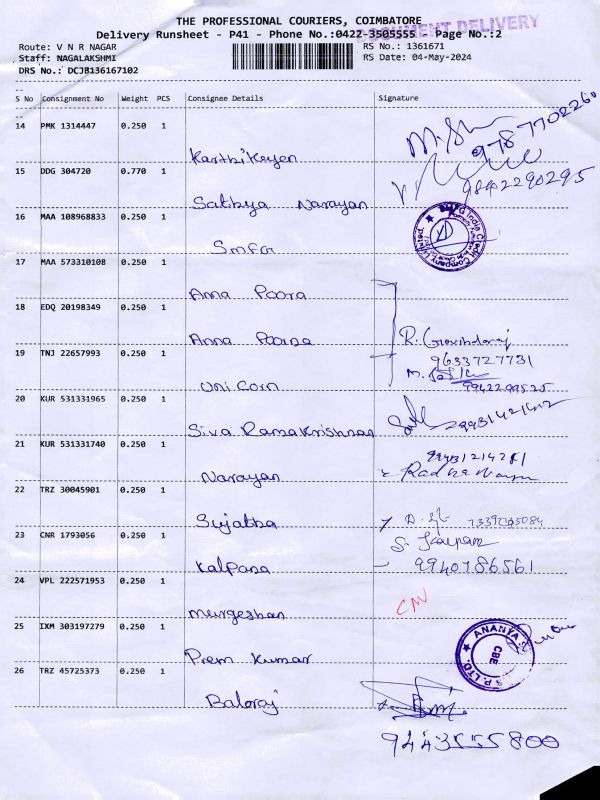 THE PROFESSIONAL COURIERS, COIMBATORE
DOCUMENT DELIVERY
Delivery Runsheet - P41 - Phone No.:0422-3505555 - Page No.:2
Route: V N R NAGAR RS No.: 1361671
Staff: NAGALAKSHMI RS Date: 04-May-2024
DRS No.: DCJB136167102
S No Consignment No Weight PCS Consignee Details Signature
14 PMK 1314447 0.250 1
Karthikeyen 9787702260
15 DDG 304720 0.770 1
Sathya Narayan 9842290295
16 MAA 108968833 0.250 1
SMFG India Credit Company Limited
17 MAA 573310108 0.250 1
Anna Poora
18 EDQ 20198349 0.250 1
Anna Poorna R. Govindaraj
9633727731
19 TNJ 22657993 0.250 1
Uni Corn
20 KUR 531331965 0.250 1
Siva Ramakrishnan
21 KUR 531331740 0.250 1
Narayan
22 TRZ 30045901 0.250 1
Sujatha
23 CNR 1793056 0.250 1
Kalpana 9940786561
24 VPL 222571953 0.250 1
Murgeshan
25 IXM 303197279 0.250 1
Prem Kumar
ANANYA S.P. LTD. CBE
26 TRZ 45725373 0.250 1
Baloraj
9443555800